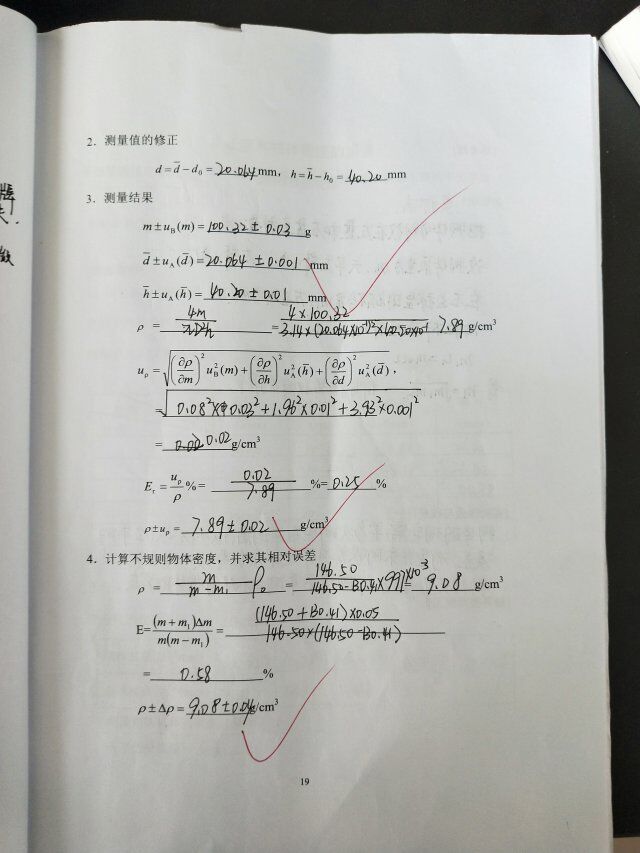 2．测量值的修正
d = d̄ − d₀ = 20.064 mm，h = h̄ − h₀ = 40.20 mm
3．测量结果
m ± u_B(m) = 100.32 ± 0.03 g
d̄ ± u_A(d̄) = 20.064 ± 0.001 mm
h̄ ± u_A(h̄) = 40.20 ± 0.01 mm
ρ = 4m / πD²h = 4×100.32 / 3.14×(20.064×10⁻¹)²× 7.89 g/cm³
u_ρ = √((∂ρ/∂m)² u_B²(m) + (∂ρ/∂h)² u_A²(h̄) + (∂ρ/∂d)² u_A²(d̄))，
= √(0.08²×0.03² + 1.96²×0.01² + 3.93²×0.001²)
= 0.02 g/cm³
E_r = u_ρ/ρ % = 0.02 / 7.89 %= 0.25 %
ρ ± u_ρ = 7.89 ± 0.02 g/cm³
4．计算不规则物体密度，并求其相对误差
ρ = m / m − m₁ ρ₀ = 146.50 / 146.50 − 130.41 × 997×10³ = 9.08 g/cm³
E= (m + m₁)Δm / m(m − m₁) = (146.50 + 130.41) × 0.05 / 146.50 × (146.50 − 130.41)
= 0.58 %
ρ ± Δρ = 9.08 ± 0.04 g/cm³
19